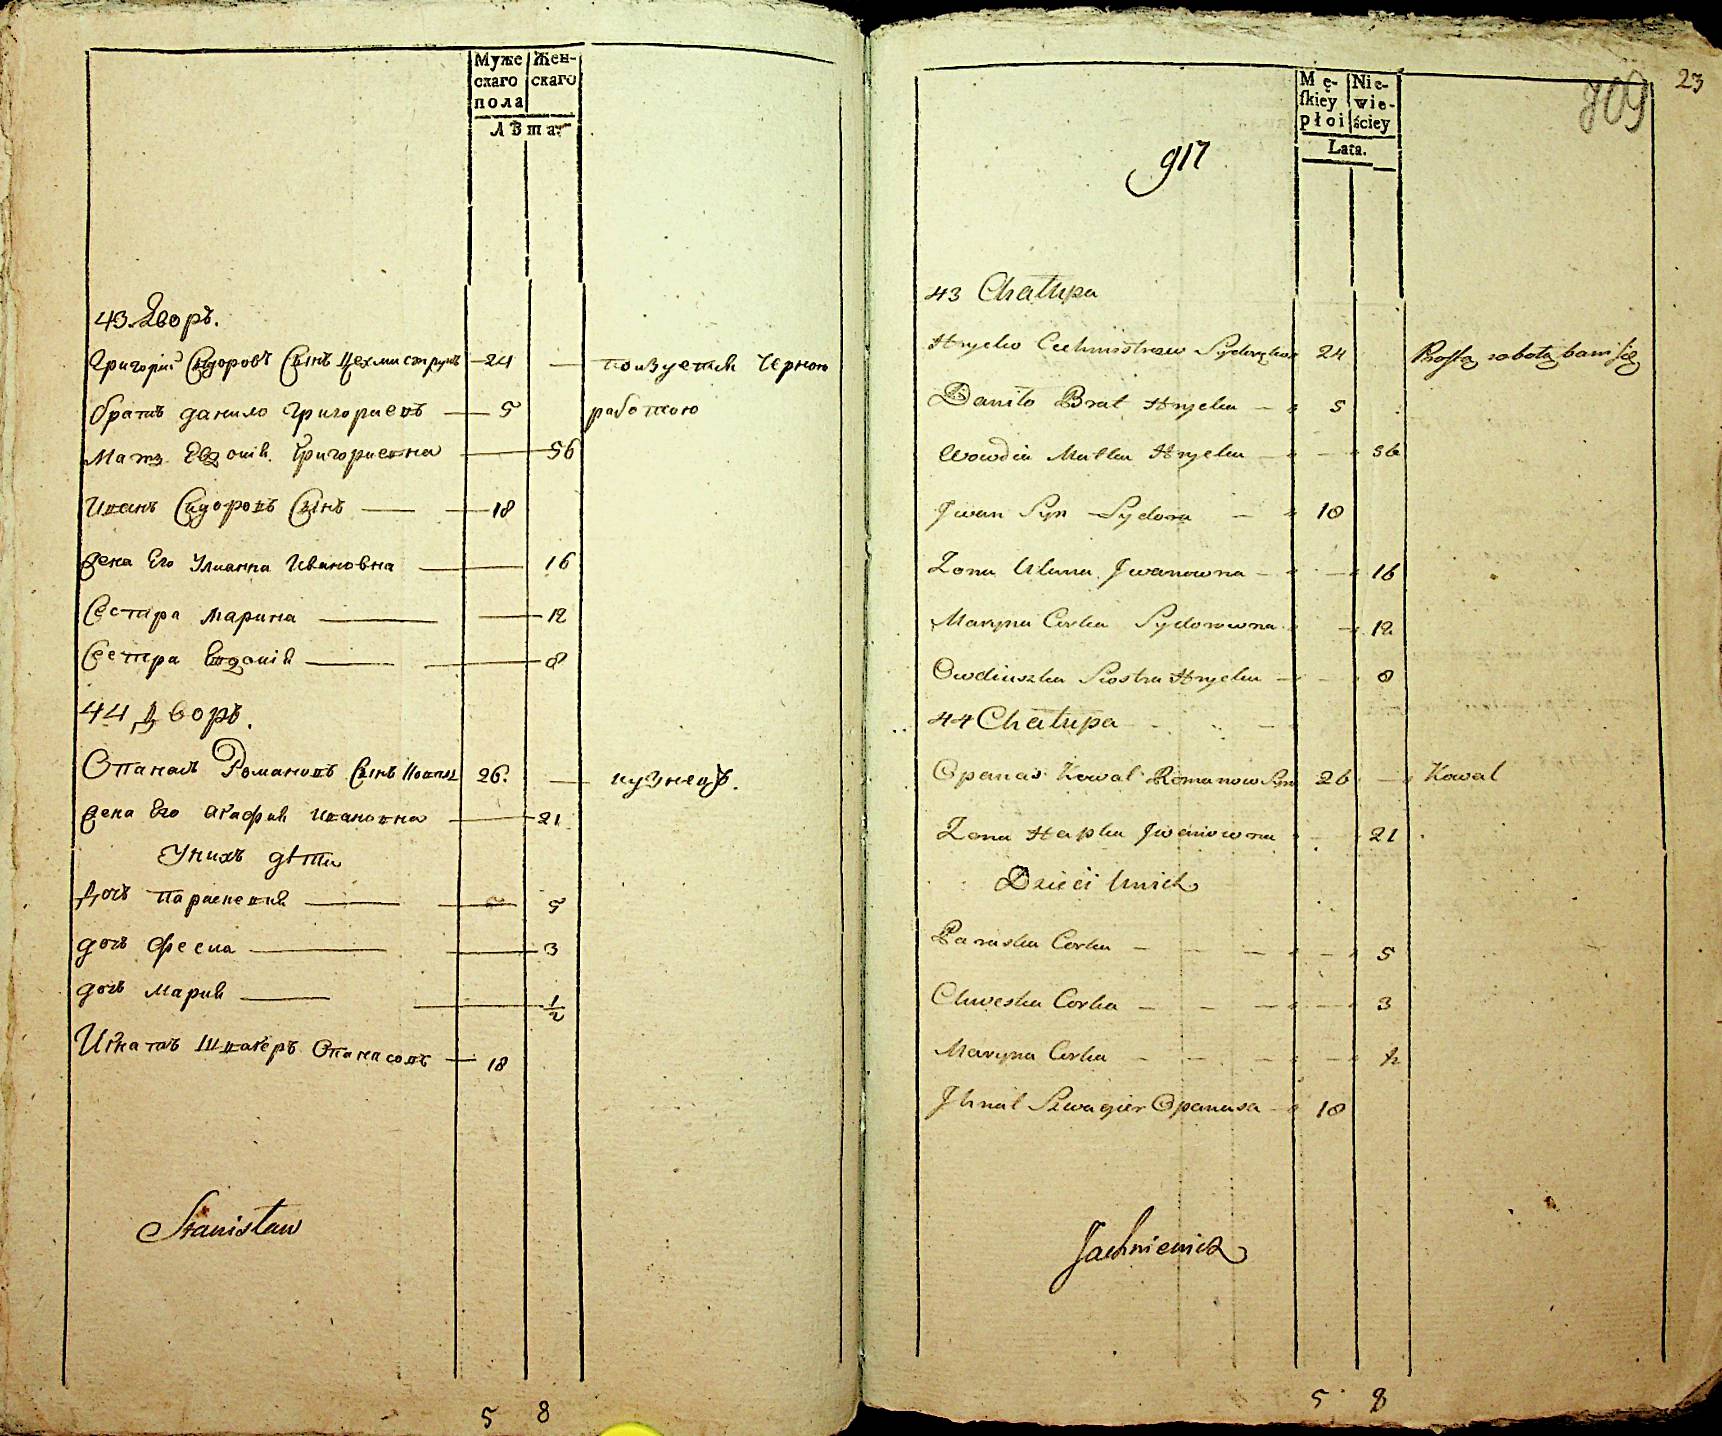 Муже
скаго
пола
Жен-
скаго
Лѣта.
43 Дворъ.
Григорій Сидоровъ Сынъ Цехмиструкъ 24 — ползуетъся Черною
братъ данило Григориевъ — 5 работою
Мать Евдокія Григориевна — 56
Иванъ Сидоровъ Сынъ — 18
Жена Его Улианна Ивановна — 16
Сестра Марина — 12
Сестра Евдокія — 8
44 Дворъ.
Опанасъ Романовъ Сынъ 26. — кузнецъ.
Жена Его Агафия Ивановна — 21
У нихъ дѣти
Дочь Параскевия — 5
дочь Феска — 3
дочь Мария — 1/2
Игнатъ Швагеръ Опанасовъ — 18
Stanisław
5 8
23
709
Mę-
skiey
płci
Nie-
wie-
ściey
Lata.
917
43 Chałupa
Hryćko Cechmistrow 24 Prostą robotą bawi się
Daniło Brat Hryćka — 5
Wowdia Matka Hryćka — 56
Jwan Syn Sydora — 18
Zona Ulana Jwanowna — 16
Maryna Corka Sydorowna 12
Owdiuszka Siostra Hryćka — 8
44 Chałupa
Opanas Kowal Romanow Syn 26 — Kowal
Zona Hapka Jwanowna 21
Dzieci Unich
Paraska Corka — 5
Chweska Corka — 3
Maryna Corka — 1/2
Jhnat Szwagier Opanasa 18
Jachniewicz
5 8